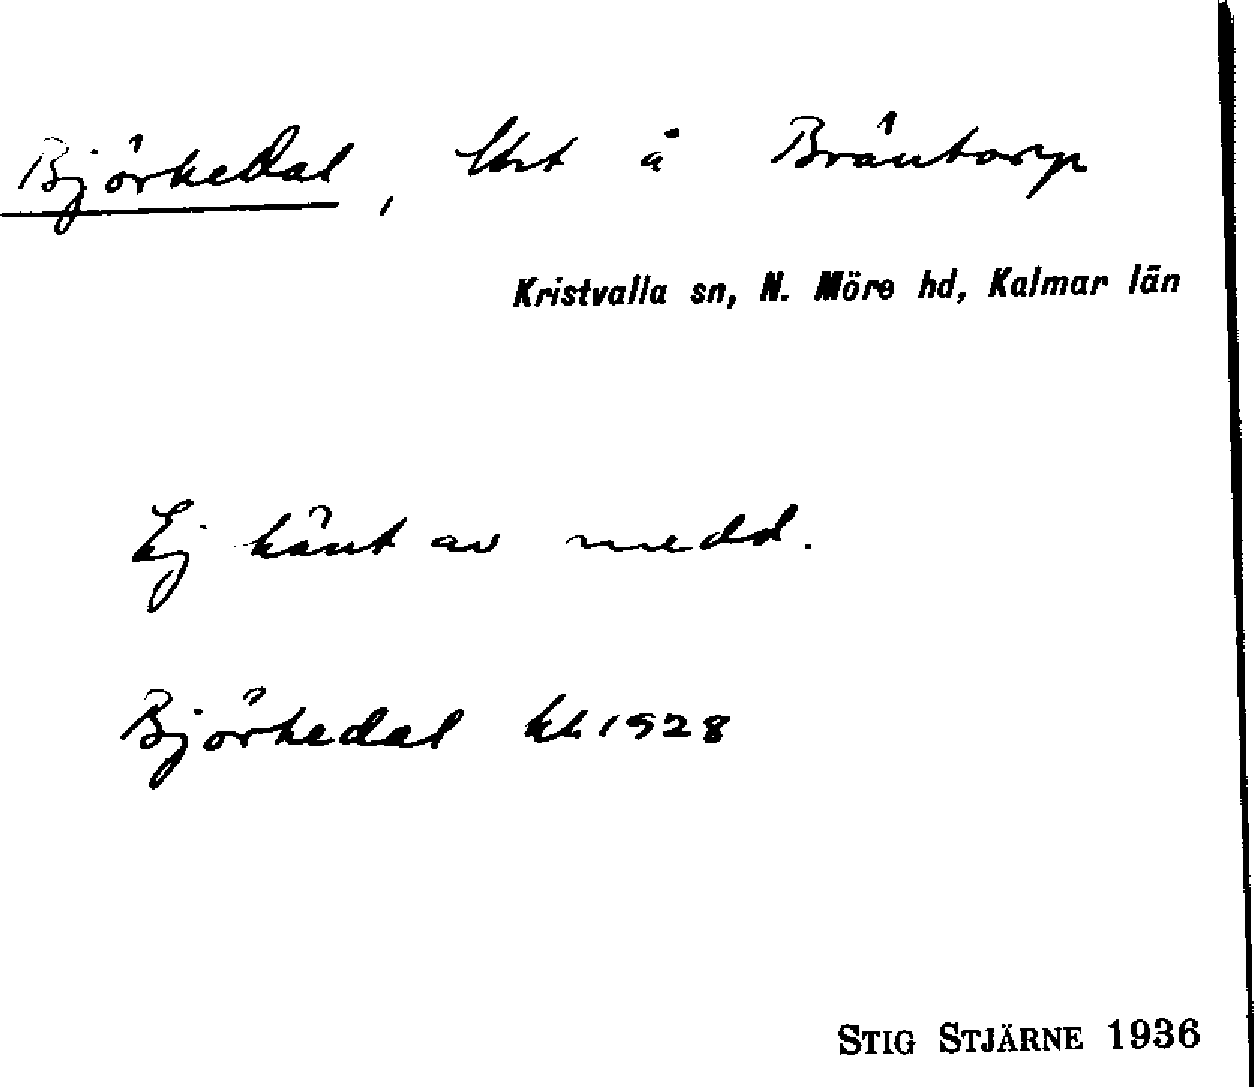 Björkedal, lht å Bräntorp
Kristvalla sn, N. Möre hd, Kalmar län
Ej känt av medd.
Björkedal kl 1928
STIG STJÄRNE 1936